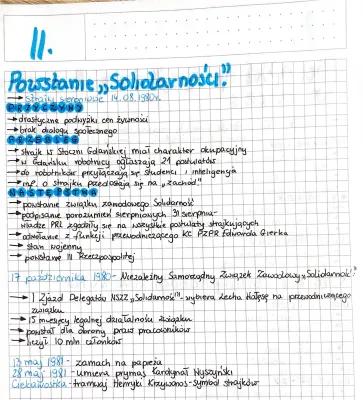 11.
Powstanie „Solidarności."
→ Strajki sierpniowe 14.08.1980r.
PRZYCZYNY
→ drastyczne podwyżki cen żywności
→ brak dialogu społecznego
PRZEBIEG
→ strajk w Stoczni Gdańskiej miał charakter okupacyjny
→ w Gdańsku robotnicy ogłaszają 21 postulatów
→ do robotników przyłączają się studenci i inteligencja
→ inf. o strajku przedostają się na „zachód"
NASTĘPSTWA
→ powstanie związku zawodowego Solidarność
→ podpisanie porozumień sierpniowych 31 sierpnia-
władze PRL zgodziły się na wszystkie postulaty strajkujących
→ odwołanie z funkcji przewodniczącego KC PZPR Edwarda Gierka
→ stan wojenny
→ powstanie III Rzeczpospolitej
17 października 1980 - Niezależny Samorządny Związek Zawodowy „Solidarność"
→ I Zjazd Delegatów NSZZ „Solidarność" - wybiera Lecha Wałęsę na przewodniczącego
związku
→ 15 miesięcy legalnej działalności związku
→ powstał dla obrony praw pracowników
→ liczył 10 mln członków
13 maj 1981 - zamach na papieża
28 maj 1981 - umiera prymas Kardynał Wyszyński
Ciekawostka - tramwaj Henryki Krzywonos - symbol strajków